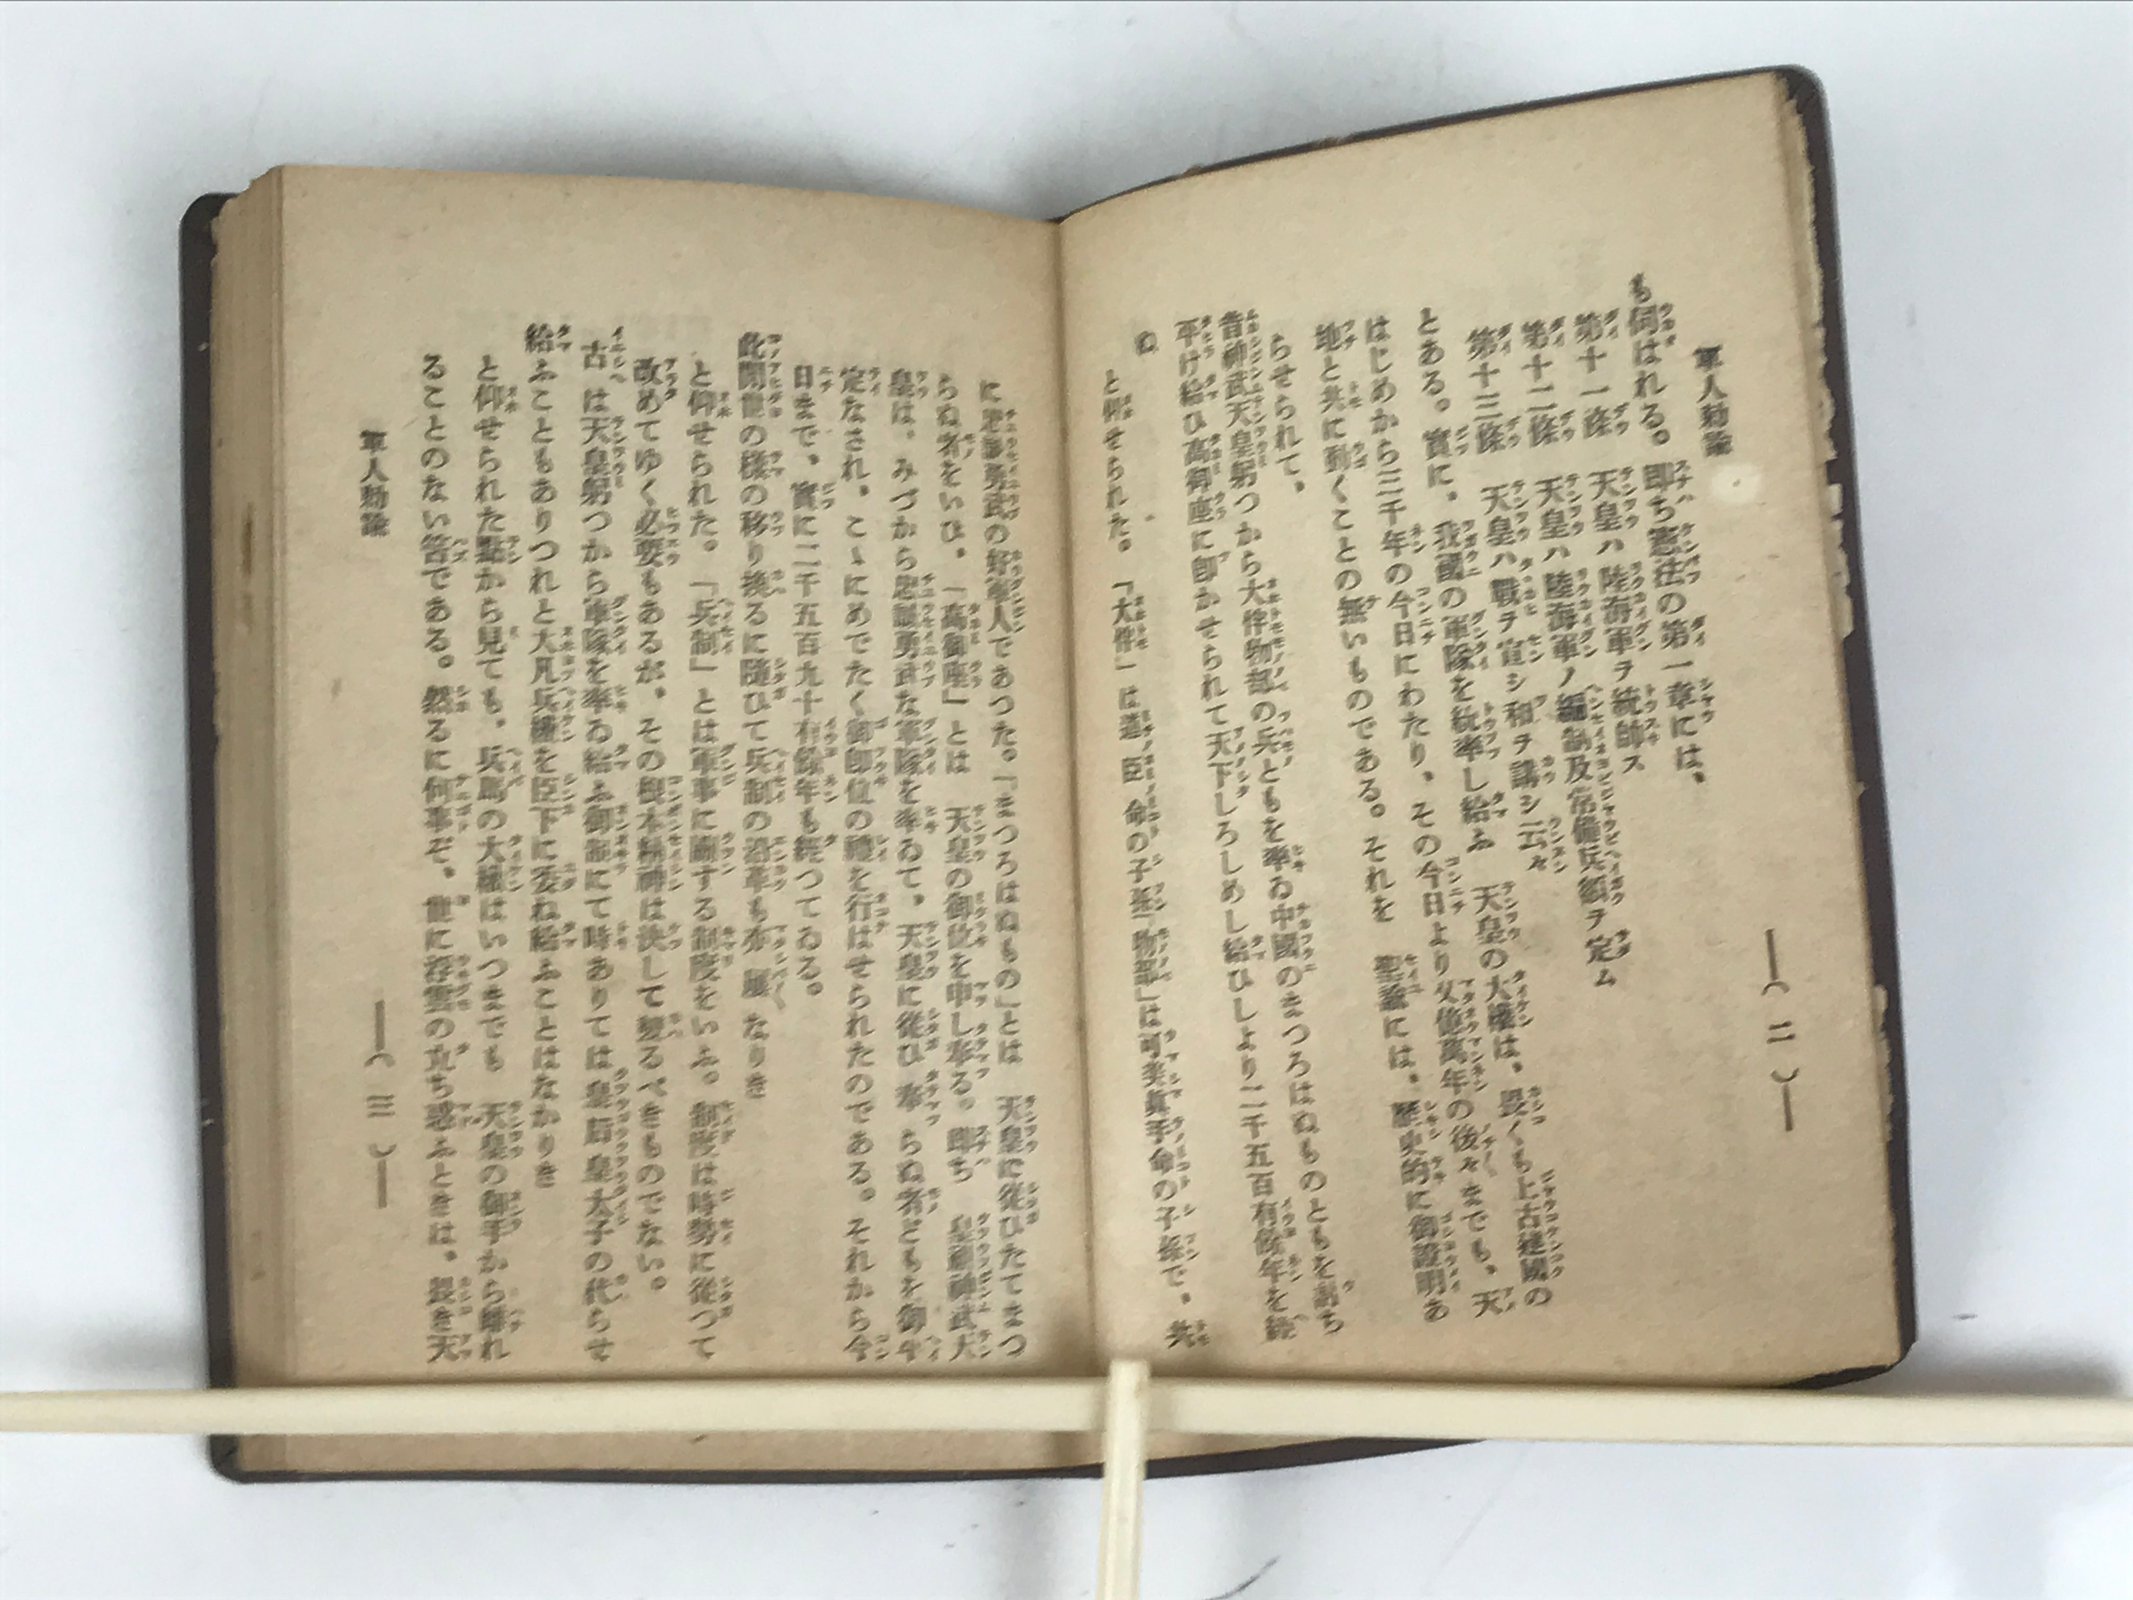 軍人勅諭
―(二)―
も伺はれる。即ち憲法の第一章には、
第十一條 天皇ハ陸海軍ヲ統帥ス
第十二條 天皇ハ陸海軍ノ編制及常備兵額ヲ定ム
第十三條 天皇ハ戰ヲ宣シ和ヲ講シ云々
とある。實に、我國の軍隊を統率し給ふ 天皇の大權は、畏くも上古建國の
はじめから三千年の今日にわたり、その今日より又億萬年の後々までも、天
地と共に動くことの無いものである。それを 聖諭には、歷史的に御證明あ
らせられて、
昔神武天皇躬つから大伴物部の兵ともを率ゐ中國のまつろはぬものともを討ち
平け給ひ高御座に卽かせられて天下しろしめし給ひしより二千五百有餘年を經
ぬ
と仰せられた。「大伴」は道臣命の子孫「物部」は可美眞手命の子孫で、共
に忠誠勇武の好軍人であつた。「まつろはぬもの」とは 天皇に從ひたてまつ
らぬ者をいひ、「高御座」とは 天皇の御位を申し奉る。卽ち 皇祖神武天
皇は、みづから忠誠勇武な軍隊を率ゐて、天皇に從ひ奉らぬ者どもを御平
定なされ、こゝにめでたく御卽位の禮を行はせられたのである。それから今
日まで、實に二千五百九十有餘年も經つてゐる。
此間世の樣の移り換るに隨ひて兵制の沿革も亦屢なりき
と仰せられた。「兵制」とは軍事に關する制度をいふ。制度は時勢に從つて
改めてゆく必要もあるが、その根本精神は決して變るべきものでない。
古は天皇躬つから軍隊を率ゐ給ふ御制にて時ありては皇后皇太子の代らせ
給ふこともありつれと大凡兵權を臣下に委ね給ふことはなかりき
と仰せられた點から見ても、兵馬の大權はいつまでも 天皇の御手から離れ
ることのない筈である。然るに何事ぞ、世に浮雲の立ち惑ふときは、畏き天
軍人勅諭
―(三)―